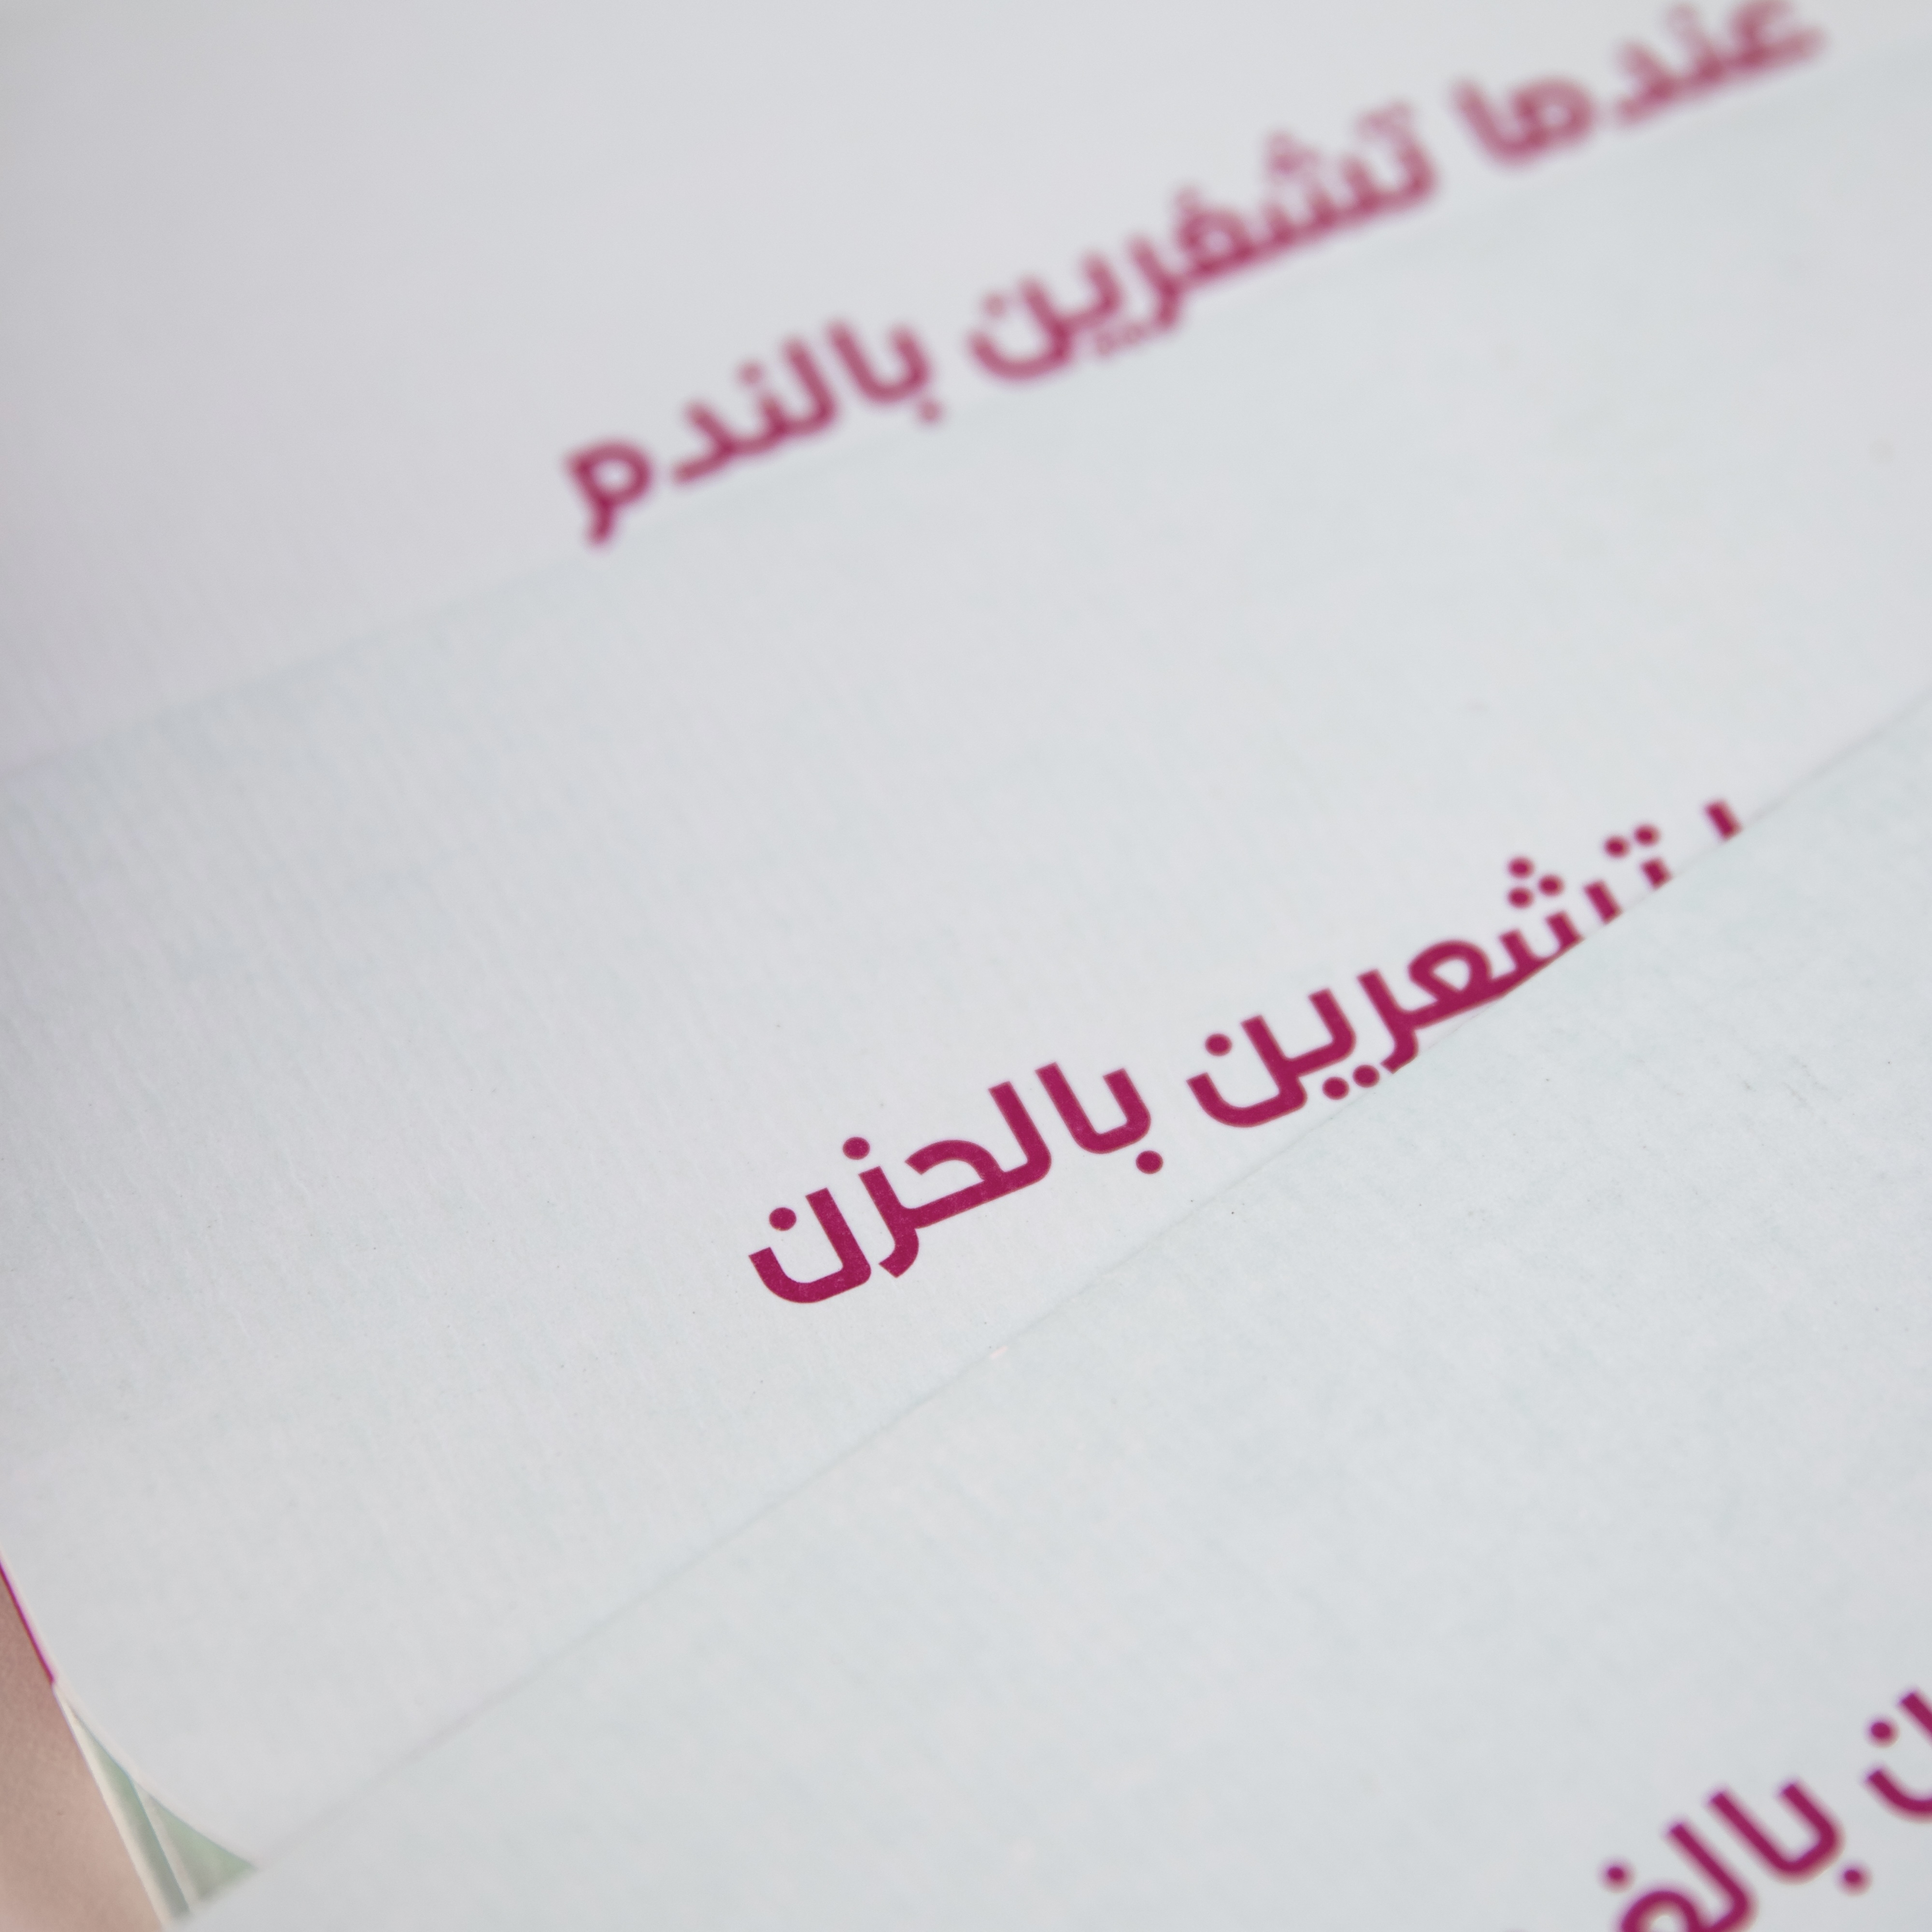 عندما تشعرين بالندم
تشعرين بالحزن